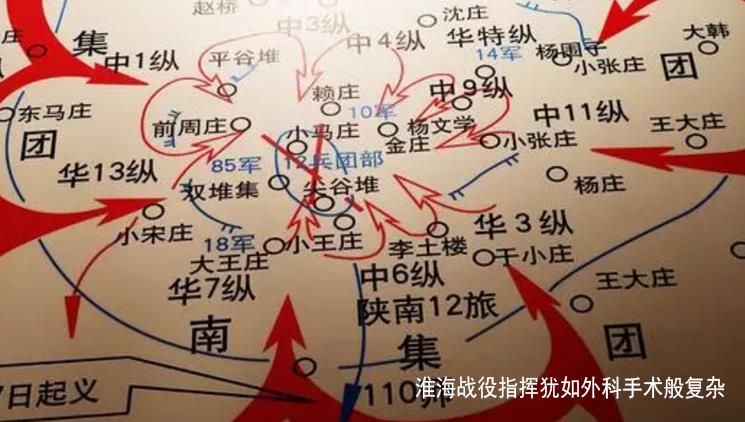 赵桥
沈庄
中3纵
集
中4纵
华特纵
大韩
中1纵
平谷堆
14军
杨围子
小张庄
团
赖庄
中9纵
东马庄
10军
中11纵
前周庄
小马庄
杨文学
王大庄
团
金庄
小张庄
华13纵
85军
12兵团部
双堆集
尖谷堆
杨庄
小宋庄
华3纵
18军
小王庄
李土楼
于小庄
大王庄
中6纵
华7纵
王大庄
陕南12旅
南
集
团
日起义
110师
淮海战役指挥犹如外科手术般复杂